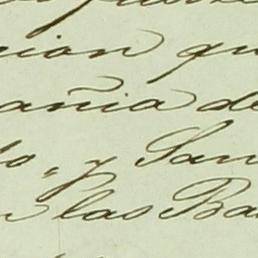 nion qu
añia de
to, y San
n las Ba